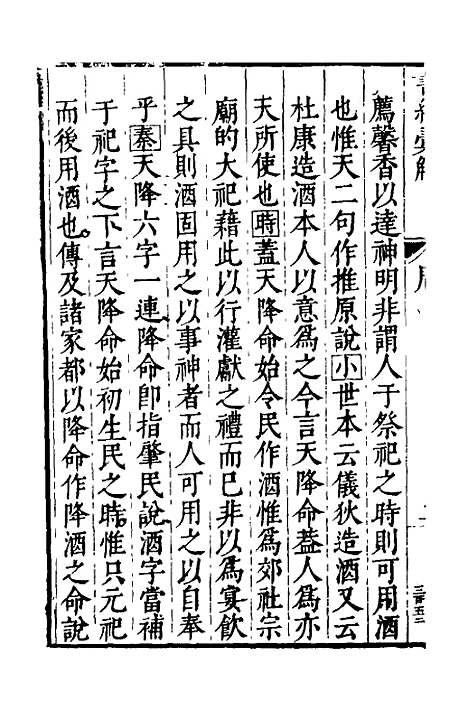 薦馨香以達神明非謂人于祭祀之時則可用酒
也惟天二句作推原說小世本云儀狄造酒又云
杜康造酒本人以意為之今言天降命葢人為亦
天所使也時葢天降命始令民作酒惟為郊社宗
廟的大祀藉此以行灌獻之禮而已非以為宴飲
之具則酒固用之以事神者而人可用之以自奉
乎秦天降六字一連降命卽指肇民說酒字當補
于祀字之下言天降命始初生民之時惟只元祀
而後用酒也傳及諸家都以降命作降酒之命說